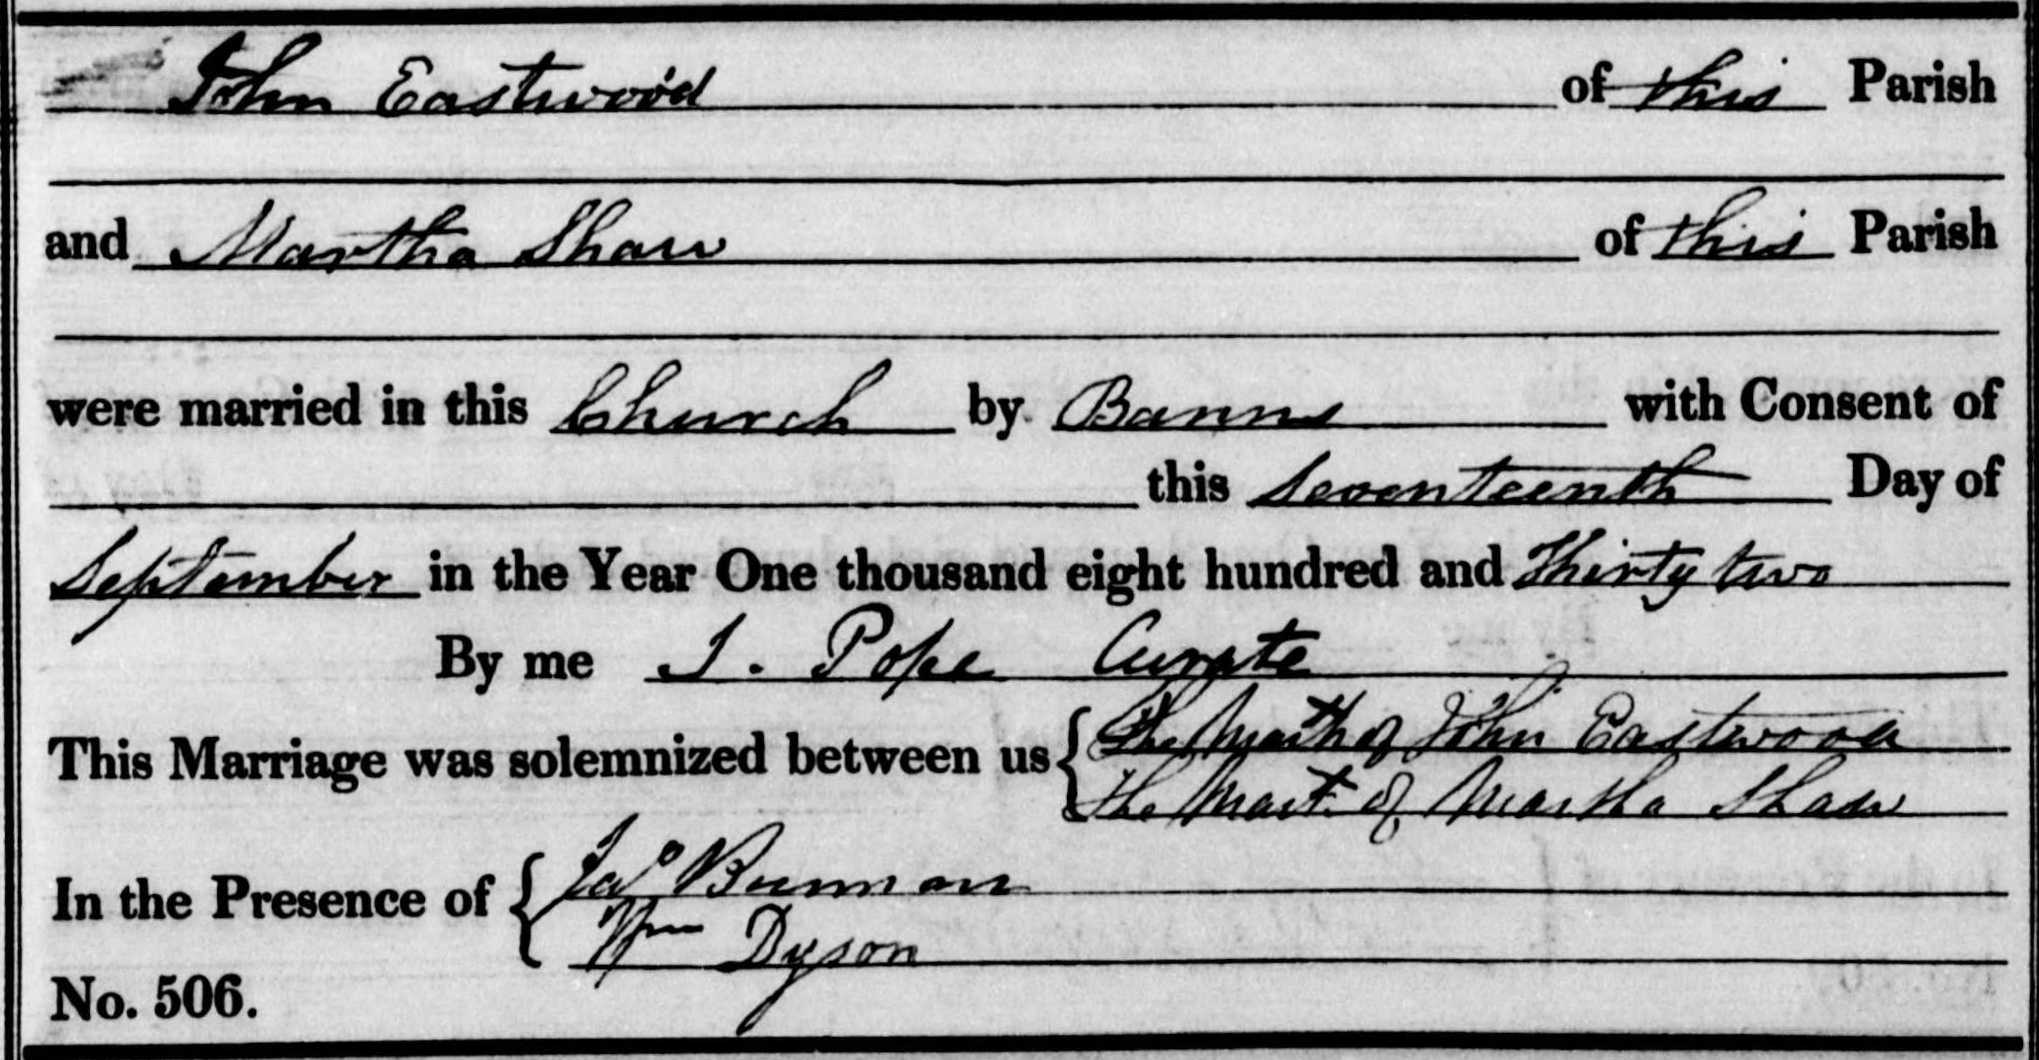 John Eastwood of this Parish
and Martha Shaw of this Parish
were married in this Church by Banns with Consent of
this Seventeenth Day of
September in the Year One thousand eight hundred and Thirty two
By me J. Pope Curate
This Marriage was solemnized between us { The Mark of John Eastwood
The Mark of Martha Shaw
In the Presence of {
Wm Dyson
No. 506.